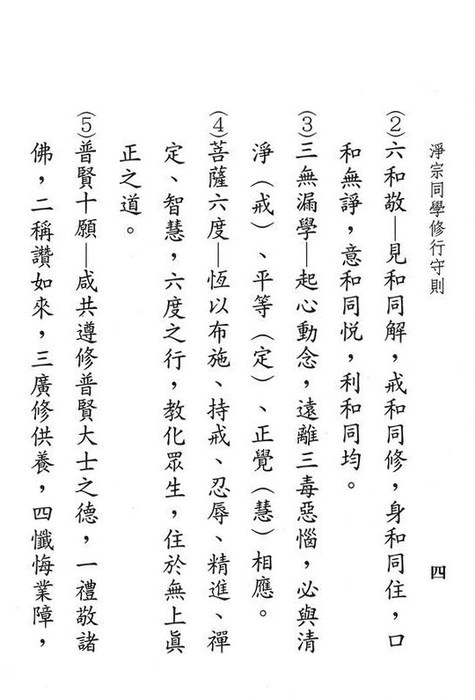 淨宗同學修行守則
四
(2)六和敬—見和同解，戒和同修，身和同住，口
和無諍，意和同悅，利和同均。
(3)三無漏學—起心動念，遠離三毒惡惱，必與清
淨（戒）、平等（定）、正覺（慧）相應。
(4)菩薩六度—恆以布施、持戒、忍辱、精進、禪
定、智慧，六度之行，教化眾生，住於無上眞
正之道。
(5)普賢十願—咸共遵修普賢大士之德，一禮敬諸
佛，二稱讚如來，三廣修供養，四懺悔業障，